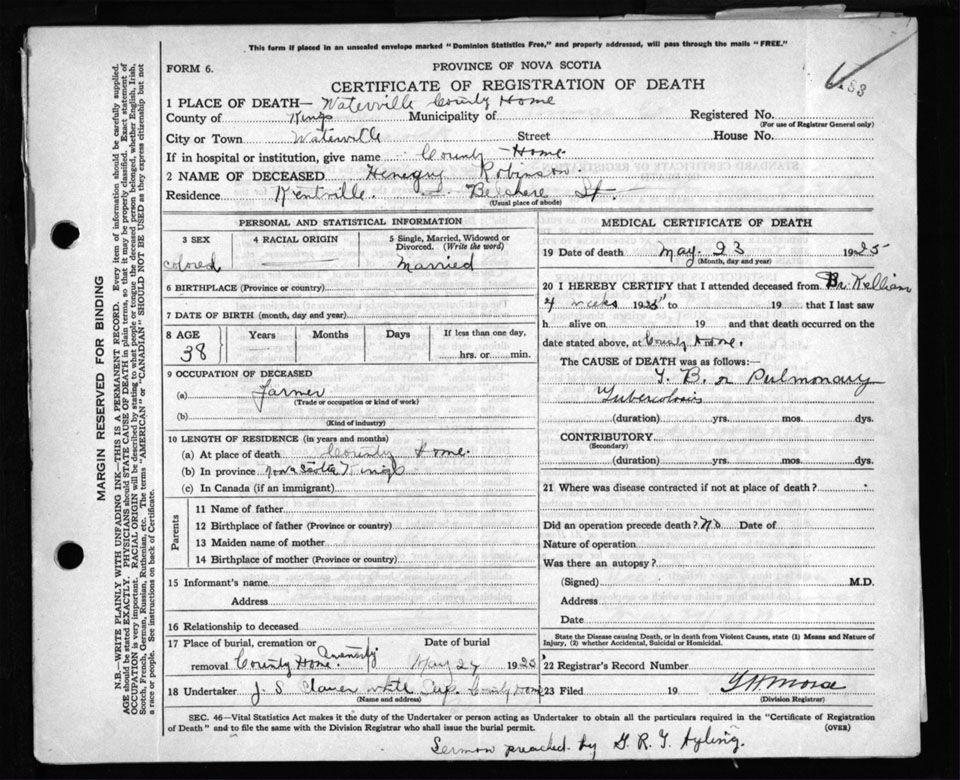 This form if placed in an unsealed envelope marked "Dominion Statistics Free," and properly addressed, will pass through the mails "FREE."
FORM 6.
PROVINCE OF NOVA SCOTIA
CERTIFICATE OF REGISTRATION OF DEATH
1 PLACE OF DEATH— Waterville County Home
County of Kings Municipality of Registered No.
(For use of Registrar General only)
City or Town Waterville Street House No.
If in hospital or institution, give name County Home
2 NAME OF DECEASED Robinson
Residence Kentville St.
(Usual place of abode)
PERSONAL AND STATISTICAL INFORMATION
3 SEX 4 RACIAL ORIGIN 5 Single, Married, Widowed or Divorced. (Write the word)
colored Married
6 BIRTHPLACE (Province or country)
7 DATE OF BIRTH (month, day and year)
8 AGE Years Months Days If less than one day,
38 hrs. or min.
9 OCCUPATION OF DECEASED
(a) Farmer
(Trade or occupation or kind of work)
(b)
(Kind of industry)
10 LENGTH OF RESIDENCE (in years and months)
(a) At place of death County Home.
(b) In province Nova Scotia
(c) In Canada (if an immigrant)
Parents
11 Name of father
12 Birthplace of father (Province or country)
13 Maiden name of mother
14 Birthplace of mother (Province or country)
15 Informant's name
Address
16 Relationship to deceased
17 Place of burial, cremation or Date of burial
removal County Home May 27 1925
18 Undertaker J. S. County Home
(Name and address)
MEDICAL CERTIFICATE OF DEATH
19 Date of death May. 23 1925
(Month, day and year)
20 I HEREBY CERTIFY that I attended deceased from
4 weeks 1925 to 19 that I last saw
h alive on 19 and that death occurred on the
date stated above, at County Home.
The CAUSE of DEATH was as follows:
T. B. or Pulmonary
Tuberculosis
(duration) yrs. mos. dys.
CONTRIBUTORY
(Secondary)
(duration) yrs. mos. dys.
21 Where was disease contracted if not at place of death?
Did an operation precede death? No Date of
Nature of operation
Was there an autopsy?
(Signed) M.D.
Address
Date
State the Disease causing Death, or in death from Violent Causes, state (1) Means and Nature of
Injury, (2) whether Accidental, Suicidal or Homicidal.
22 Registrar's Record Number
23 Filed 19
(Division Registrar)
SEC. 46—Vital Statistics Act makes it the duty of the Undertaker or person acting as Undertaker to obtain all the particulars required in the "Certificate of Registration
of Death" and to file the same with the Division Registrar who shall issue the burial permit. (OVER)
Sermon preached by
MARGIN RESERVED FOR BINDING
N.B.—WRITE PLAINLY WITH UNFADING INK—THIS IS A PERMANENT RECORD. Every item of information should be carefully supplied.
AGE should be stated EXACTLY. PHYSICIANS should STATE CAUSE OF DEATH in plain terms, so that it may be properly classified. Exact statement of
OCCUPATION is very important. RACIAL ORIGIN will be described by stating to what people or tongue the deceased person belonged, whether English, Irish,
Scotch, French, German, Russian, Ruthenian, etc. The terms "AMERICAN" or "CANADIAN" SHOULD NOT BE USED as they express citizenship but not
a race or people. See instructions on back of Certificate.